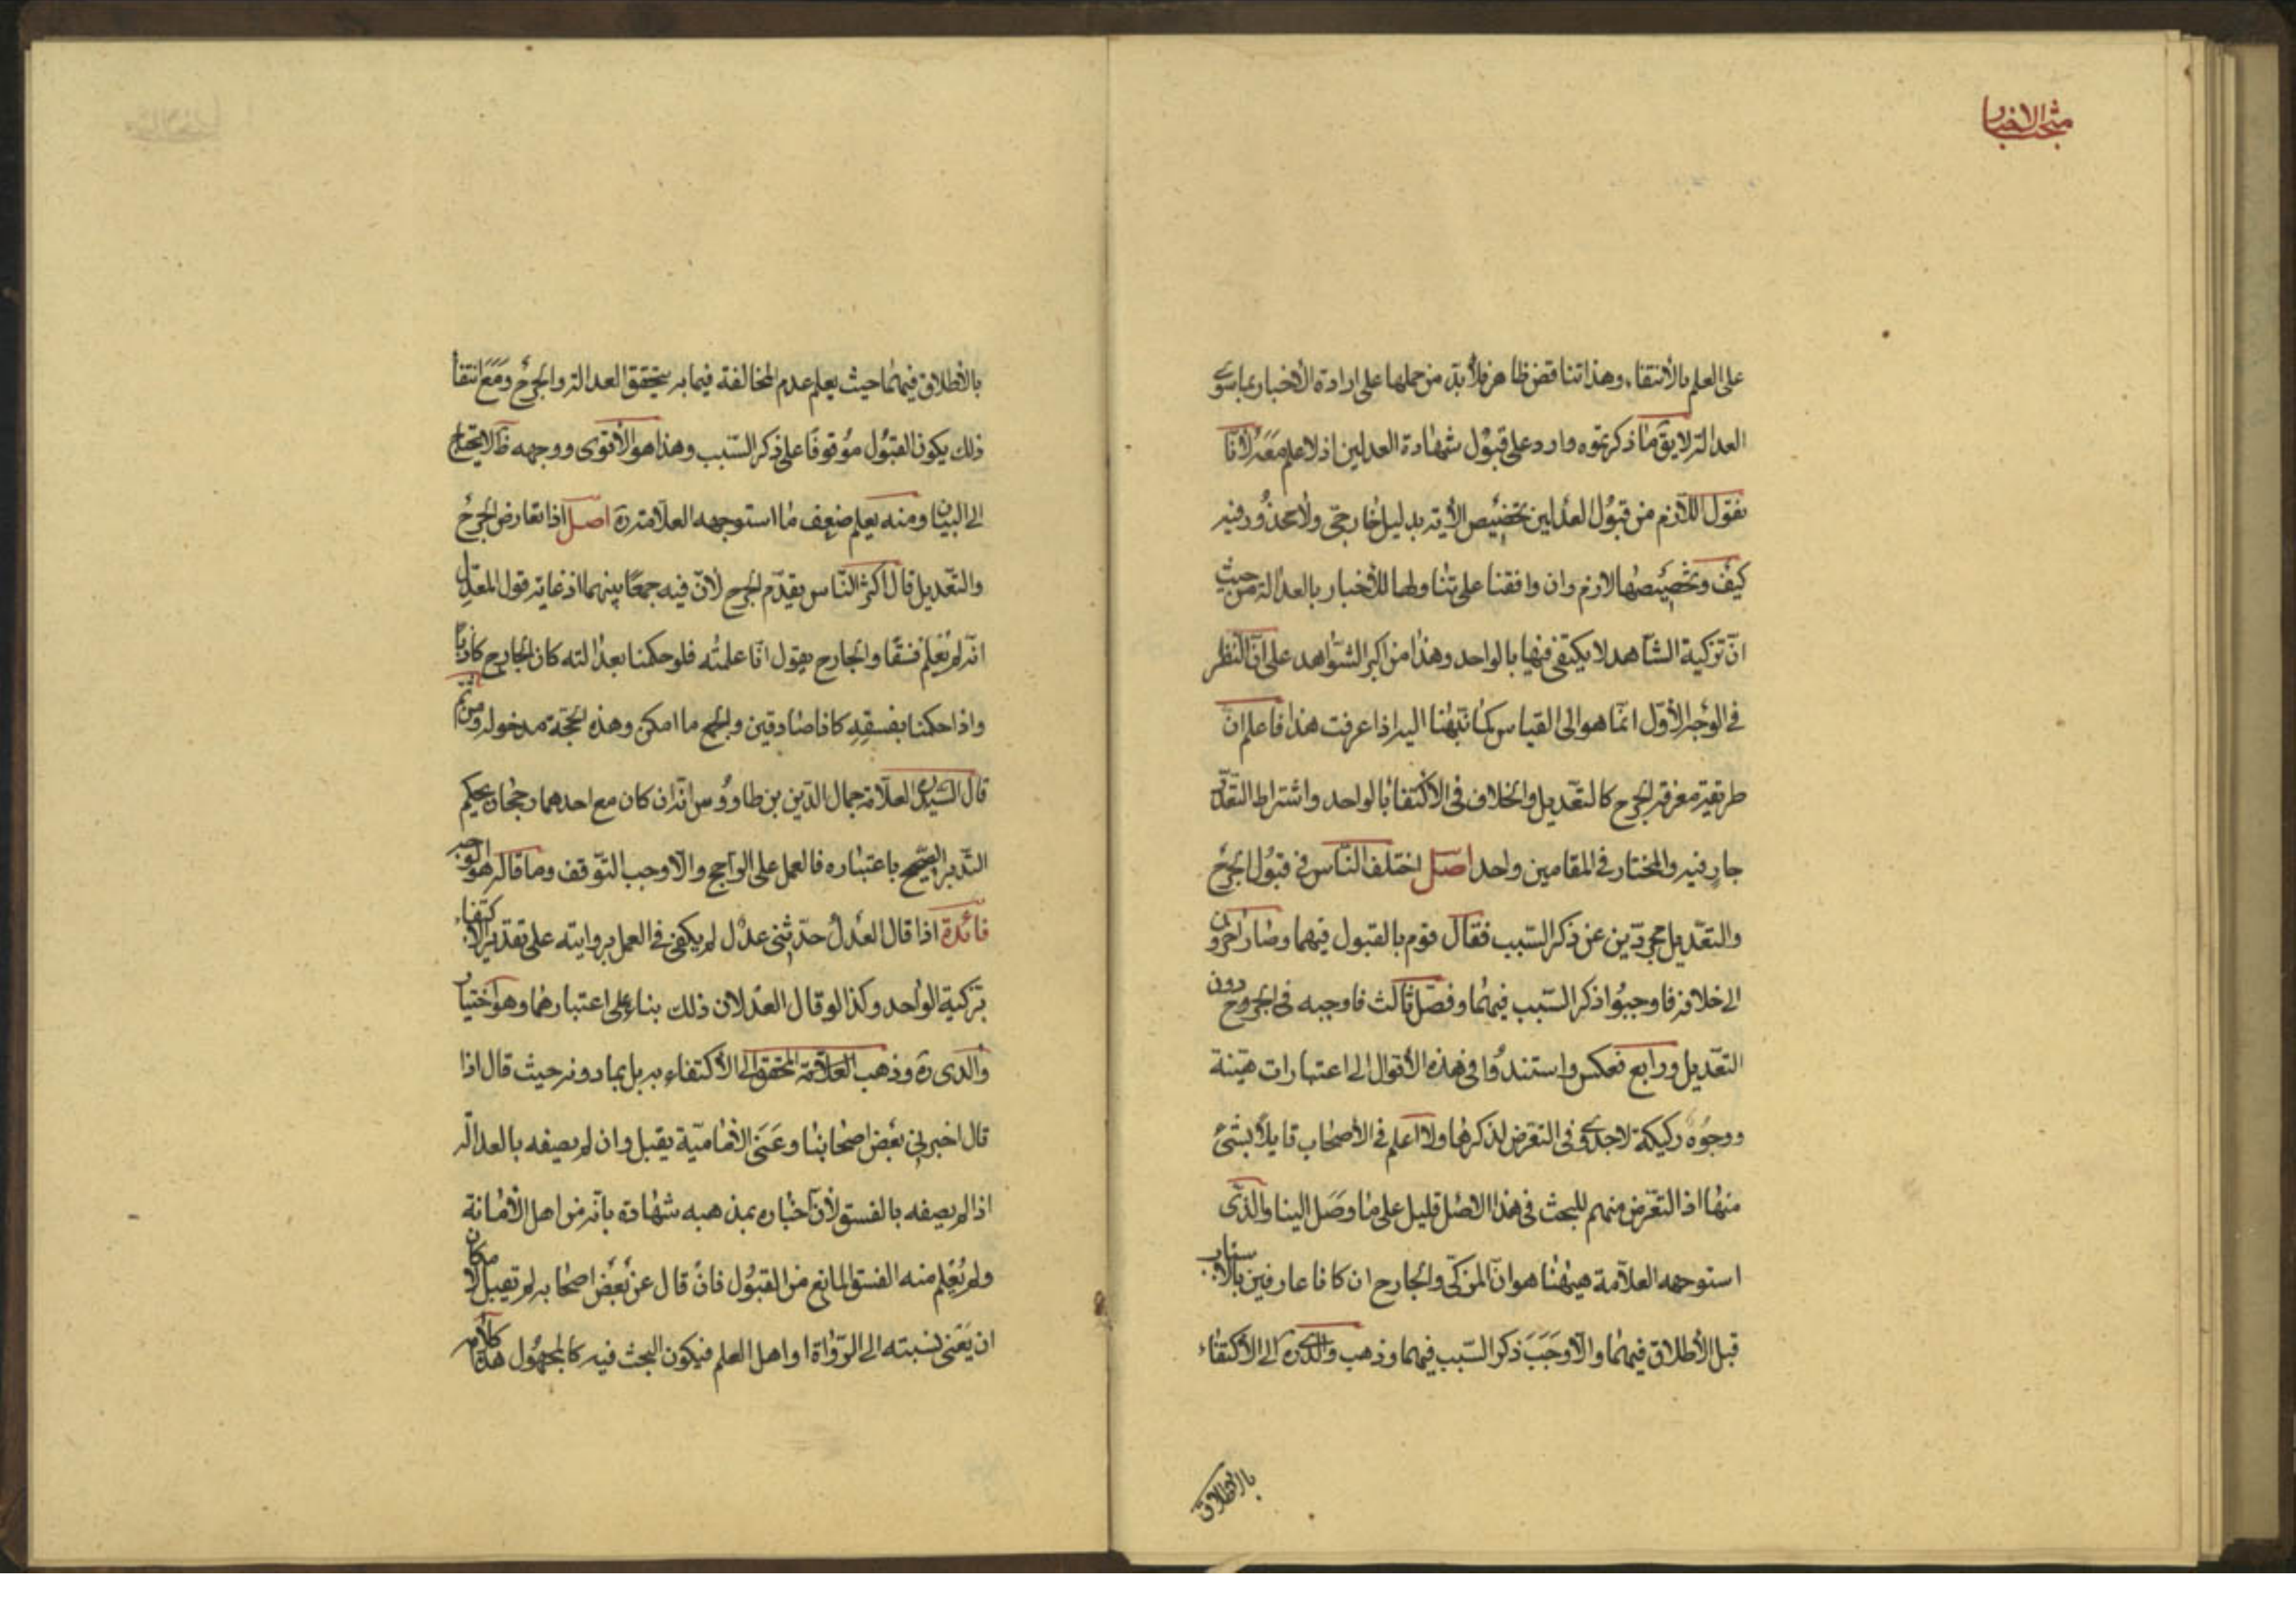 منتخب الاخبار
على العلم بالأنتفاء وهذا تناقض ظاهر فلا بد من حملها على ارادة الأخبار بما سوى
العدالة لا يق ما ذكرتموه وارد على قبول شهادة العدلين اذ لا علم معه لأنا
نقول اللازم من قبول العدلين تخصيص الأية بدليل خارجى ولا محذور فيه
كيف وتخصيصها لازم وان وافقنا على تناولها للأخبار بالعدالة من حيث
ان تزكية الشاهد لا يكتفى فيها بالواحد وهذا من اكبر الشواهد على ان النظر
فى الوجه الأول انما هو الى القياس كما نبهنا اليه اذا عرفت هذا فاعلم ان
طريقة معرفة الجرح كالتعديل والخلاف فى الأكتفاء بالواحد واشتراط التعدد
جار فيه والمختار فى المقامين واحد اصل اختلف الناس فى قبول الجرح
والتعديل مجردين عن ذكر السبب فقال قوم بالقبول فيهما وصار اخرون
الى خلافه فاوجبوا ذكر السبب فيهما وفصل ثالث فاوجبه فى الجروح دون
التعديل ورابع فعكس واستندوا فى هذه الأقوال الى اعتبارات هينة
ووجوه ركيكة لا جدوى فى التعرض لذكرها ولا اعلم فى الأصحاب قايلا بشئ
منها اذ التعرض منهم للبحث فى هذا الاصل قليل على ما وصل الينا والذى
استوجهه العلامة هيهنا هو ان المزكى والجارح ان كانا عارفين بالأسباب
قبل الأطلاق فيهما والا وجب ذكر السبب فيهما وذهب والدى ره الى الأكتفاء
بالأطلاق
بالأطلاق فيهما حيث يعلم عدم المخالفة فيما به يتحقق العدالة والجرح ومع انتفا
ذلك يكون القبول موقوفا على ذكر السبب وهذا هو الأقوى ووجهه ظ لا يحتاج
الى البيان ومنه يعلم ضعف ما استوجهه العلامة ره اصل اذا تعارض الجرح
والتعديل قال اكثر الناس يقدم الجرح لأن فيه جمعا بينهما اذ غاية قول المعدل
انه لم يعلم فسقا والجارح يقول انا علمته فلو حكمنا بعدالته كان الجارح كاذبا
واذا حكمنا بفسقه كانا صادقين والجمع ما امكن وهذه الحجة مدخولة ومن ثم
قال السيد العلامة جمال الدين بن طاووس انه ان كان مع احدهما رجحان يحكم
التدبر الصحيح باعتباره فالعمل على الراجح والا وجب التوقف وما قاله هو الوجه
فائدة اذا قال العدل حدثنى عدل لم يكفى فى العمل بروايته على تقدير الأكتفاء
بتزكية الواحد وكذا لو قال العدلان ذلك بناء على اعتبارهما وهو اختيار
والدى ره وذهب العلامة المحقق الى الأكتفاء به بل بما دونه حيث قال اذا
قال اخبرنى بعض اصحابنا وعنى الأمامية يقبل وان لم يصفه بالعدالة
اذا لم يصفه بالفسق لأن اخباره بمذهبه شهادة بأنه من اهل الأمانة
ولم يعلم منه الفسق المانع من القبول فان قال عن بعض اصحابه لم تقبل لامكان
ان يعنى نسبته الى الرواة او اهل العلم فيكون البحث فيه كالمجهول هذا كلامه